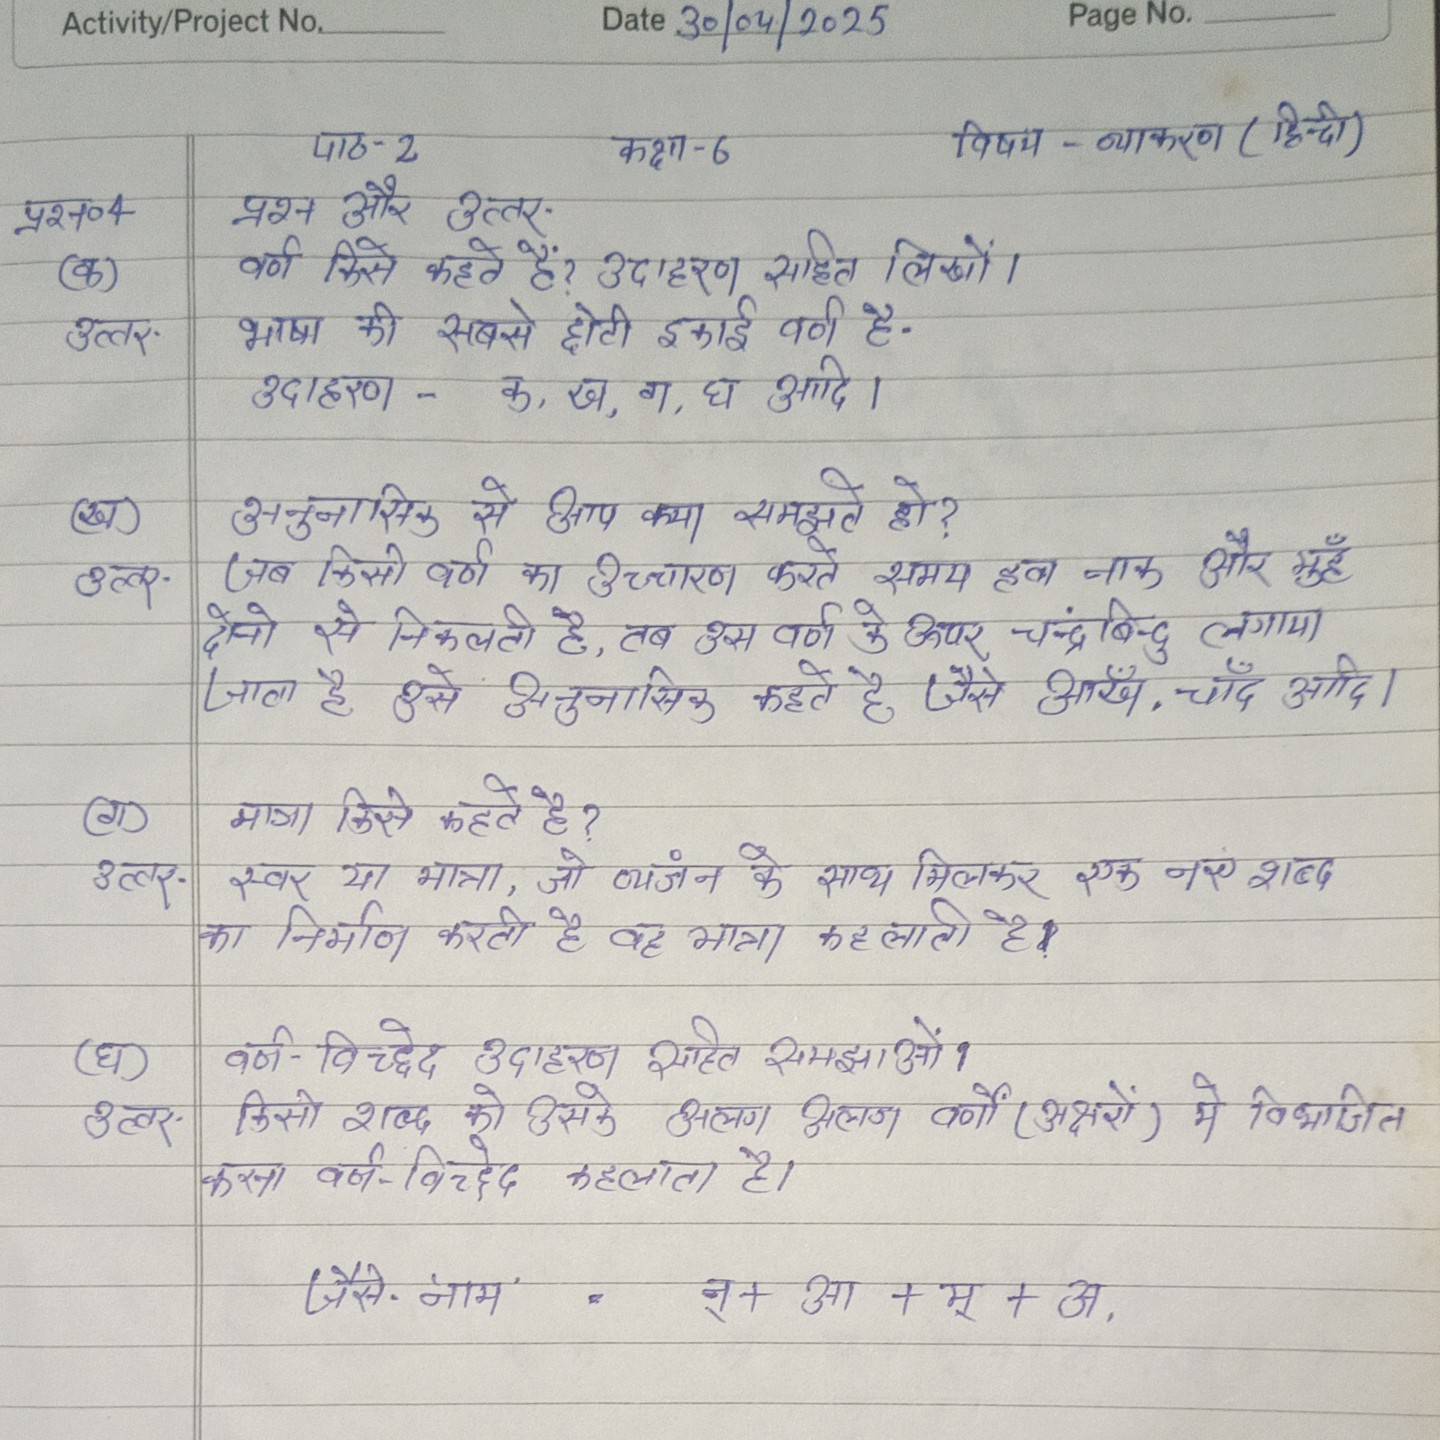 Activity/Project No. Date 30/04/2025 Page No.
पाठ-2 कक्षा-6 विषय - व्याकरण (हिन्दी)
प्रश्न०4 प्रश्न और उत्तर.
(क) वर्ण किसे कहते हैं? उदाहरण सहित लिखों।
उत्तर. भाषा की सबसे छोटी इकाई वर्ण है.
उदाहरण - क, ख, ग, घ आदि।
(ख) अनुनासिक से आप क्या समझते हो?
उत्तर. जब किसी वर्ण का उच्चारण करते समय हवा नाक और मुहँ
दोनो से निकलती है, तब उस वर्ण के ऊपर चन्द्रंबिन्दु लगाया
जाता है उसे अनुनासिक कहते है जैसे आँखें, चाँद आदि।
(ग) मात्रा किसे कहते है?
उत्तर. स्वर या मात्रा, जो व्यजंन के साथ मिलकर एक नए शब्द
का निर्माण करती है वह मात्रा कहलाती है।
(घ) वर्ण-विच्छेद उदाहरण सहित समझाओं।
उत्तर. किसी शब्द को उसके अलग अलग वर्णों (अक्षरों) मे विभाजित
करना वर्ण-विच्छेद कहलाता है।
जैसे. नाम - न् + आ + म् + अ.